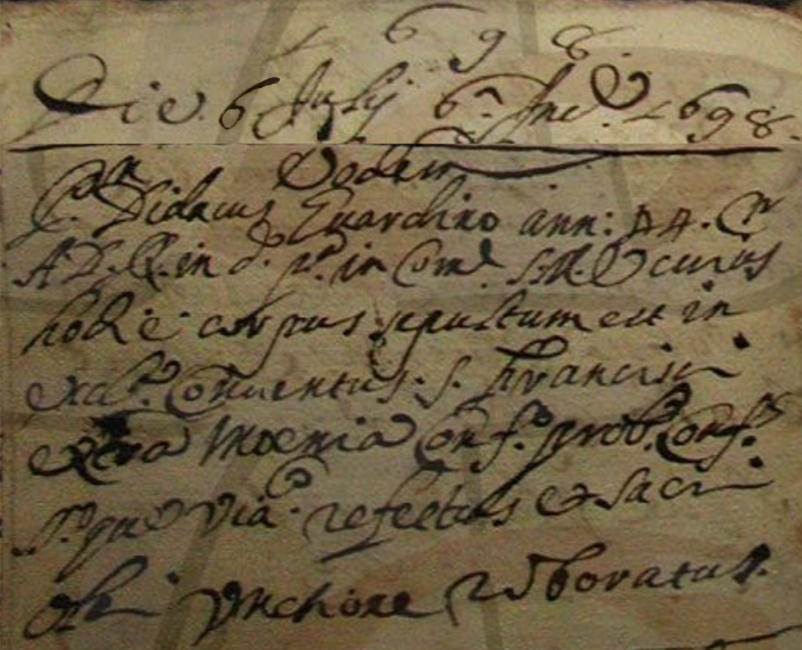 1698.
Die 6 Julij 6.ª Ind. 1698.
Eodem
C. Didacus Guardino ann: 44. Cr
A.D.R. in d.º p.º in Com.e S.M.E cuius
hodie corpus sepultum est in
Eccl.ª Conventus S. Francisci
extra moenia Conf.º prob.º Conf.s
S.º que Viaº refectus & sacri
olei unctione roboratus.